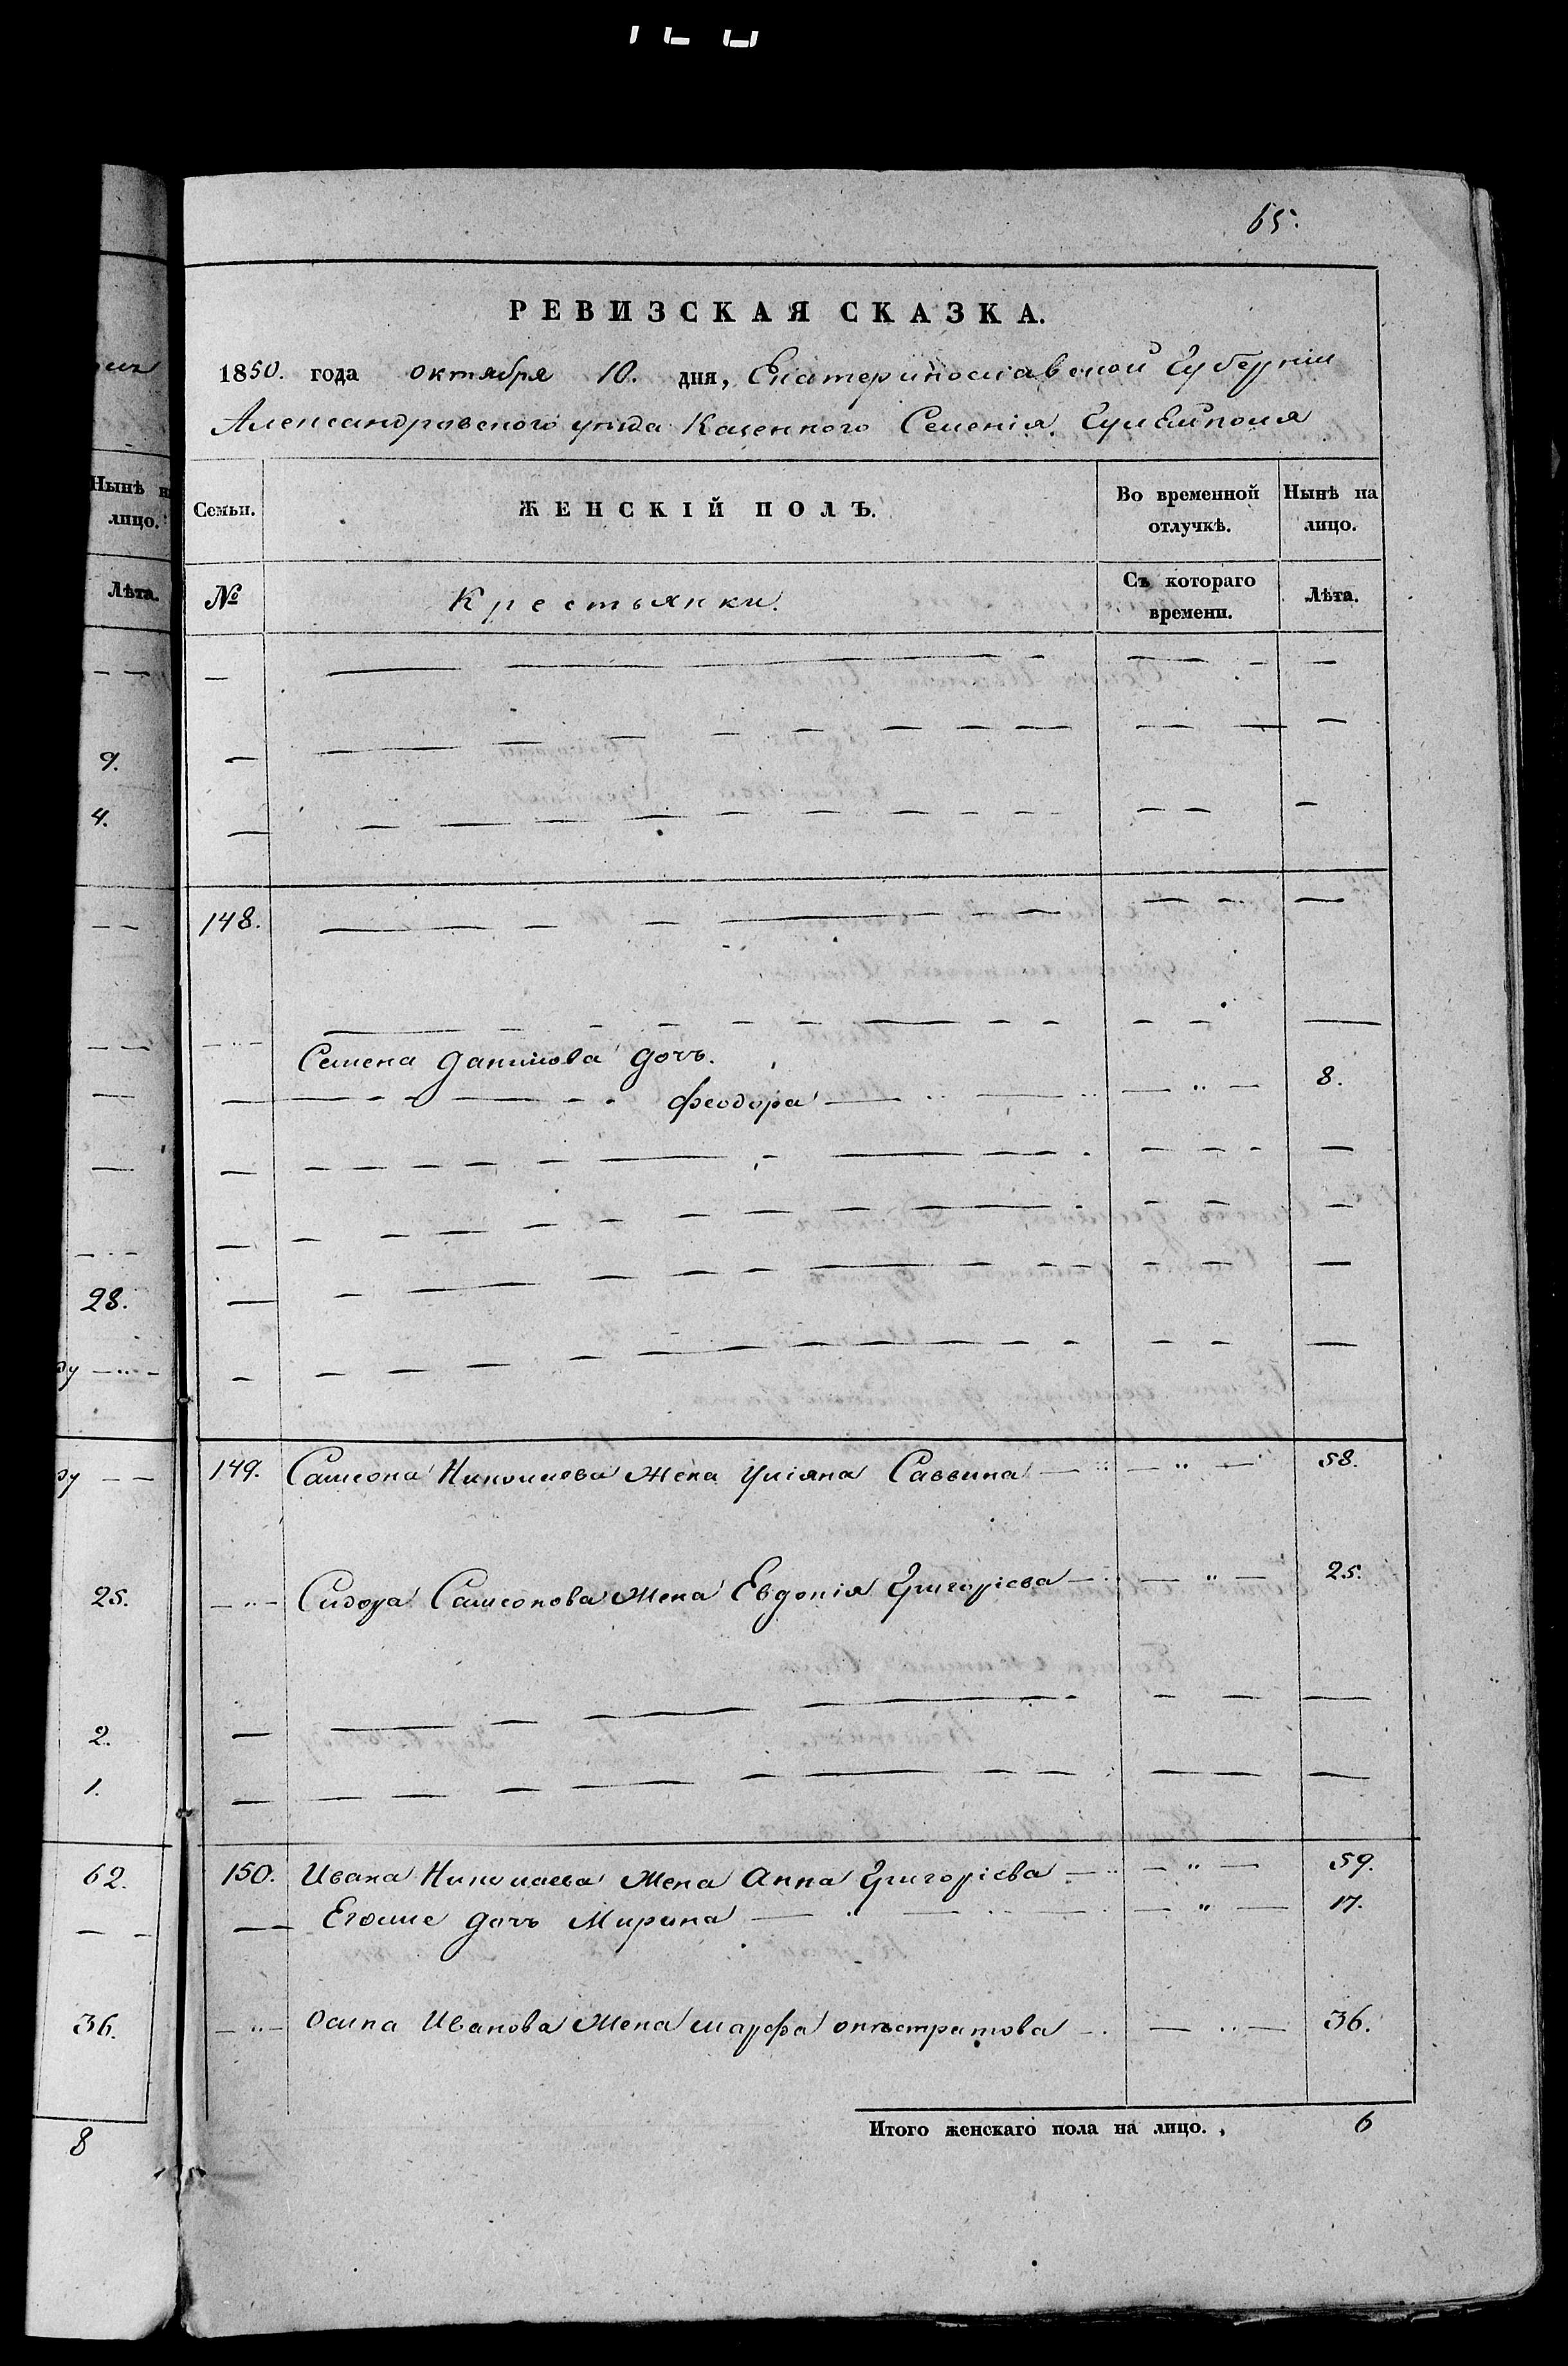 65.
РЕВИЗСКАЯ СКАЗКА.
1850. года октября 10. дня, Екатеринославской Губерніи
Александровского уезда Казенного Селенія Гуляйполя
Нынѣ н
лицо.
Лѣта.
9.
4.
28.
25.
2.
1.
62.
36.
8
Семьи.
ЖЕНСКІЙ ПОЛЪ.
Во временной отлучкѣ.
Нынѣ на лицо.
№
Крестьянки.
Съ котораго времени.
Лѣта.
148.
Семена Данилова дочь.
Феодора 8.
149. Самсона Николаева жена Уліяна Саввина 58.
Сидора Самсонова жена Евдокія Григоріева 25.
150. Ивана Николаева жена Анна Григоріева 59.
Егоже дочь Марина 17.
Осипа Иванова жена Марфа 36.
Итого женскаго пола на лицо. 6